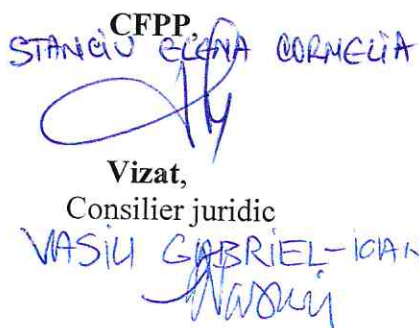 CFPP,
STANCIU ELENA CORNELIA
Vizat,
Consilier juridic
VASILI GABRIEL-IOAN